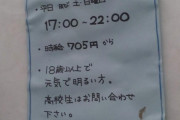 ・平日 土・日曜日
17:00～22:00
・時給 705円から
・18歳以上で
元気で明るい方。
高校生はお問い合わせ
下さい。